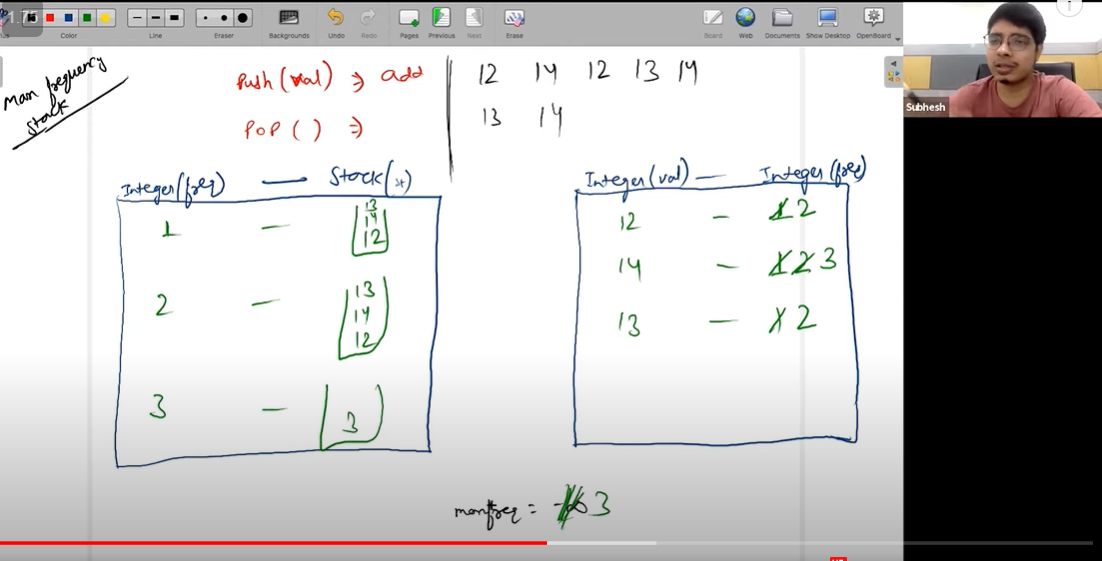 1.75
Color
Line
Eraser
Backgrounds
Undo
Redo
Pages
Previous
Next
Erase
Board
Web
Documents
Show Desktop
OpenBoard
Subhesh
Max frequency
stack
Push (val) ⇒ add
POP ( ) ⇒
12 14 12 13 14
13 14
Integer(freq) — Stack(st)
1 — 13
14
12
2 — 13
14
12
3 — 3
Integer(val) — Integer(freq)
12 — 1 2
14 — 1 2 3
13 — 1 2
maxfreq = 3